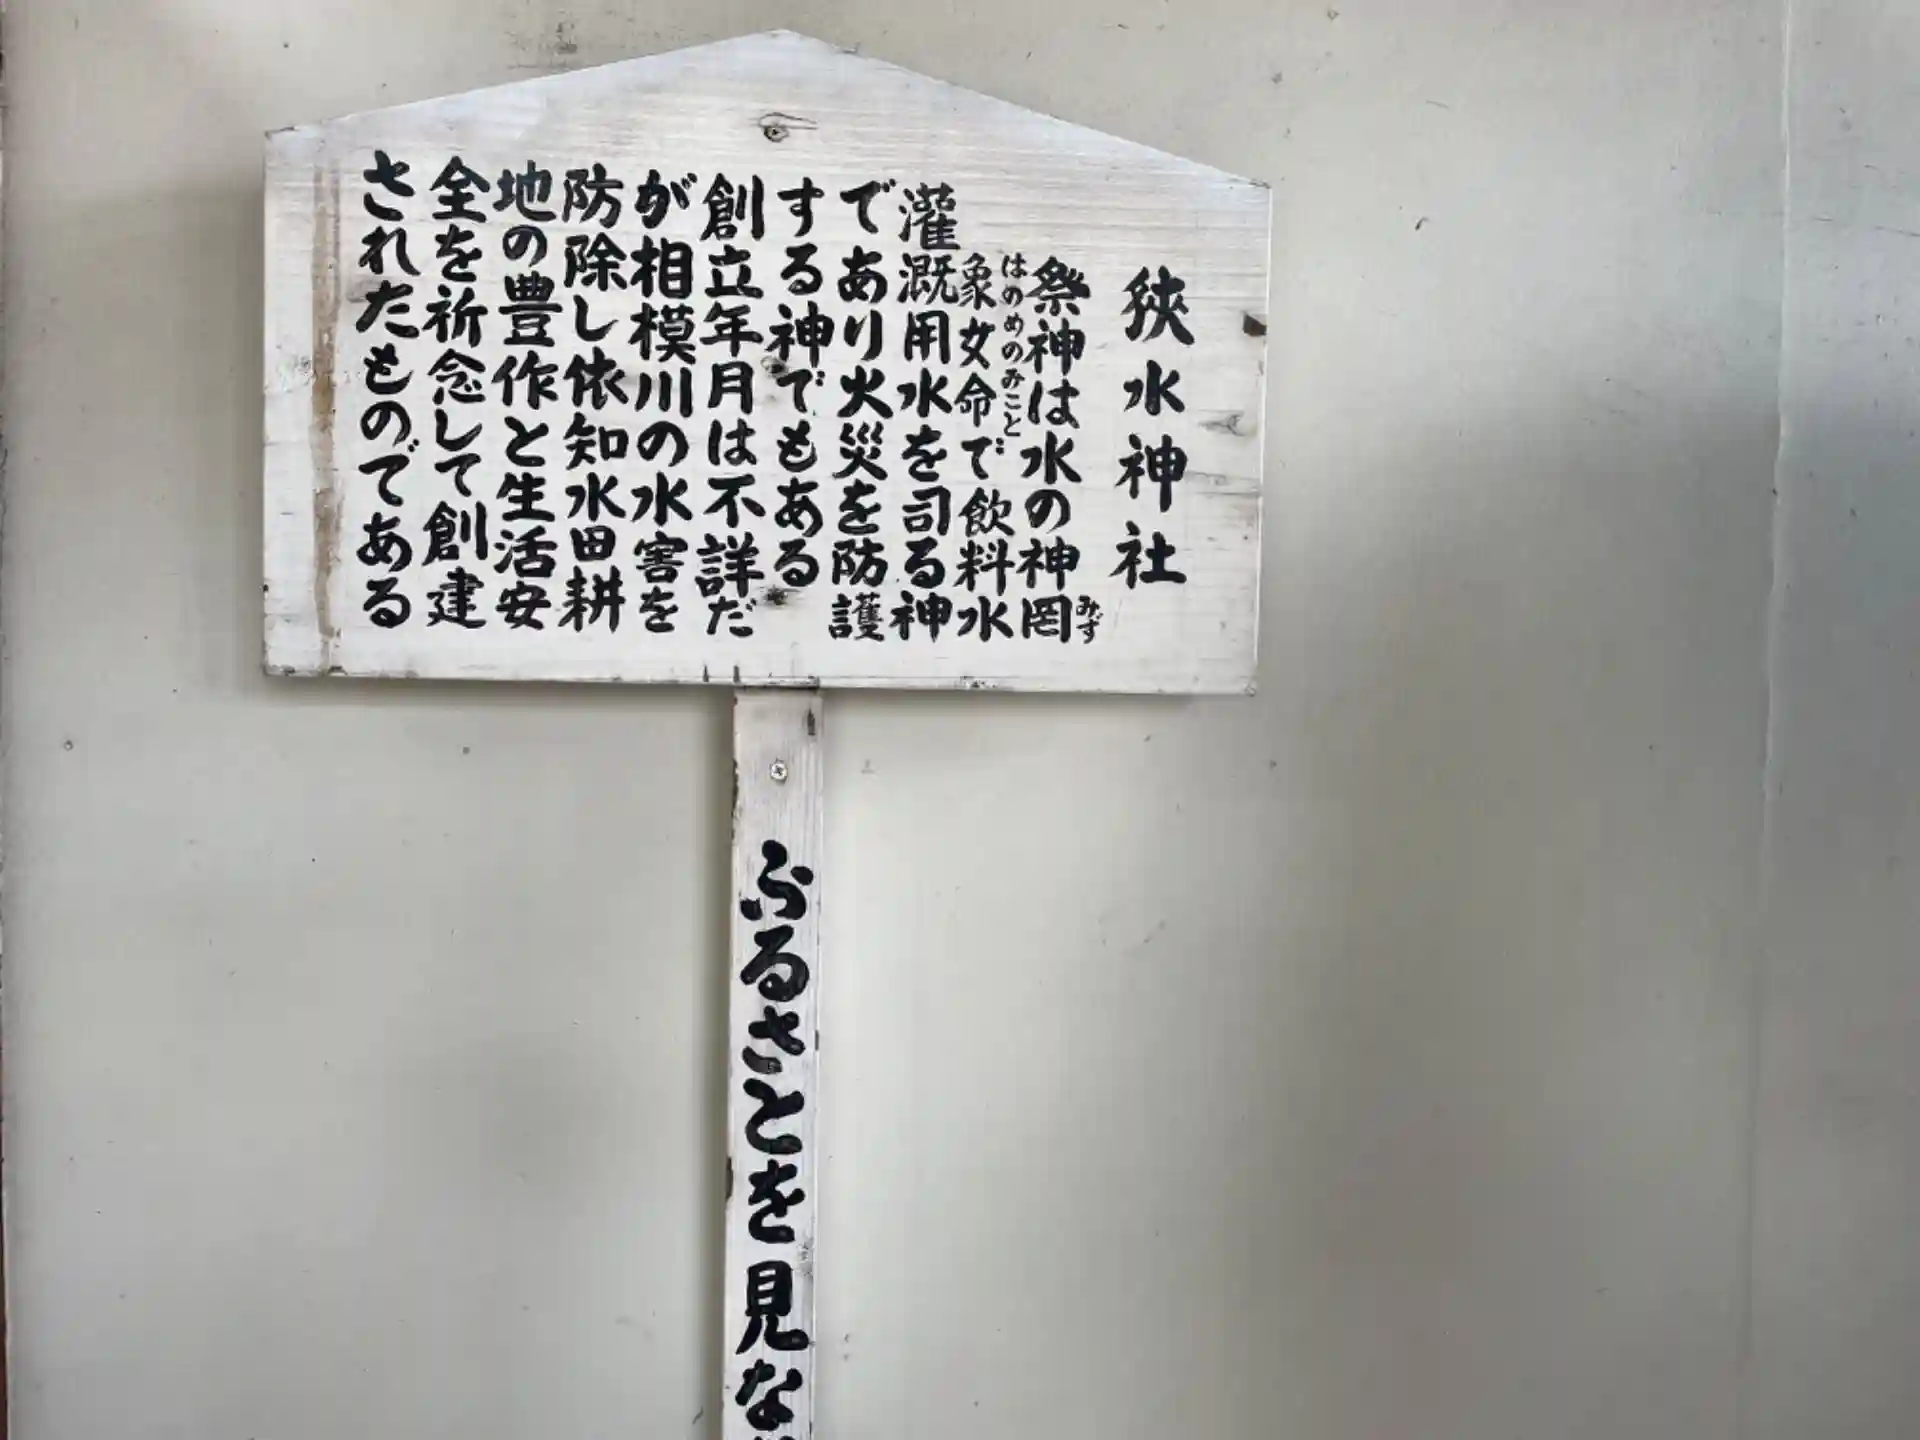 狹水神社
祭神は水の神罔みず
象女命はのめのみことで飲料水
灌漑用水を司る神
であり火災を防護
する神でもある
創立年月は不詳だ
が相模川の水害を
防除し依知水田耕
地の豊作と生活安
全を祈念して創建
されたものである
ふるさとを見な